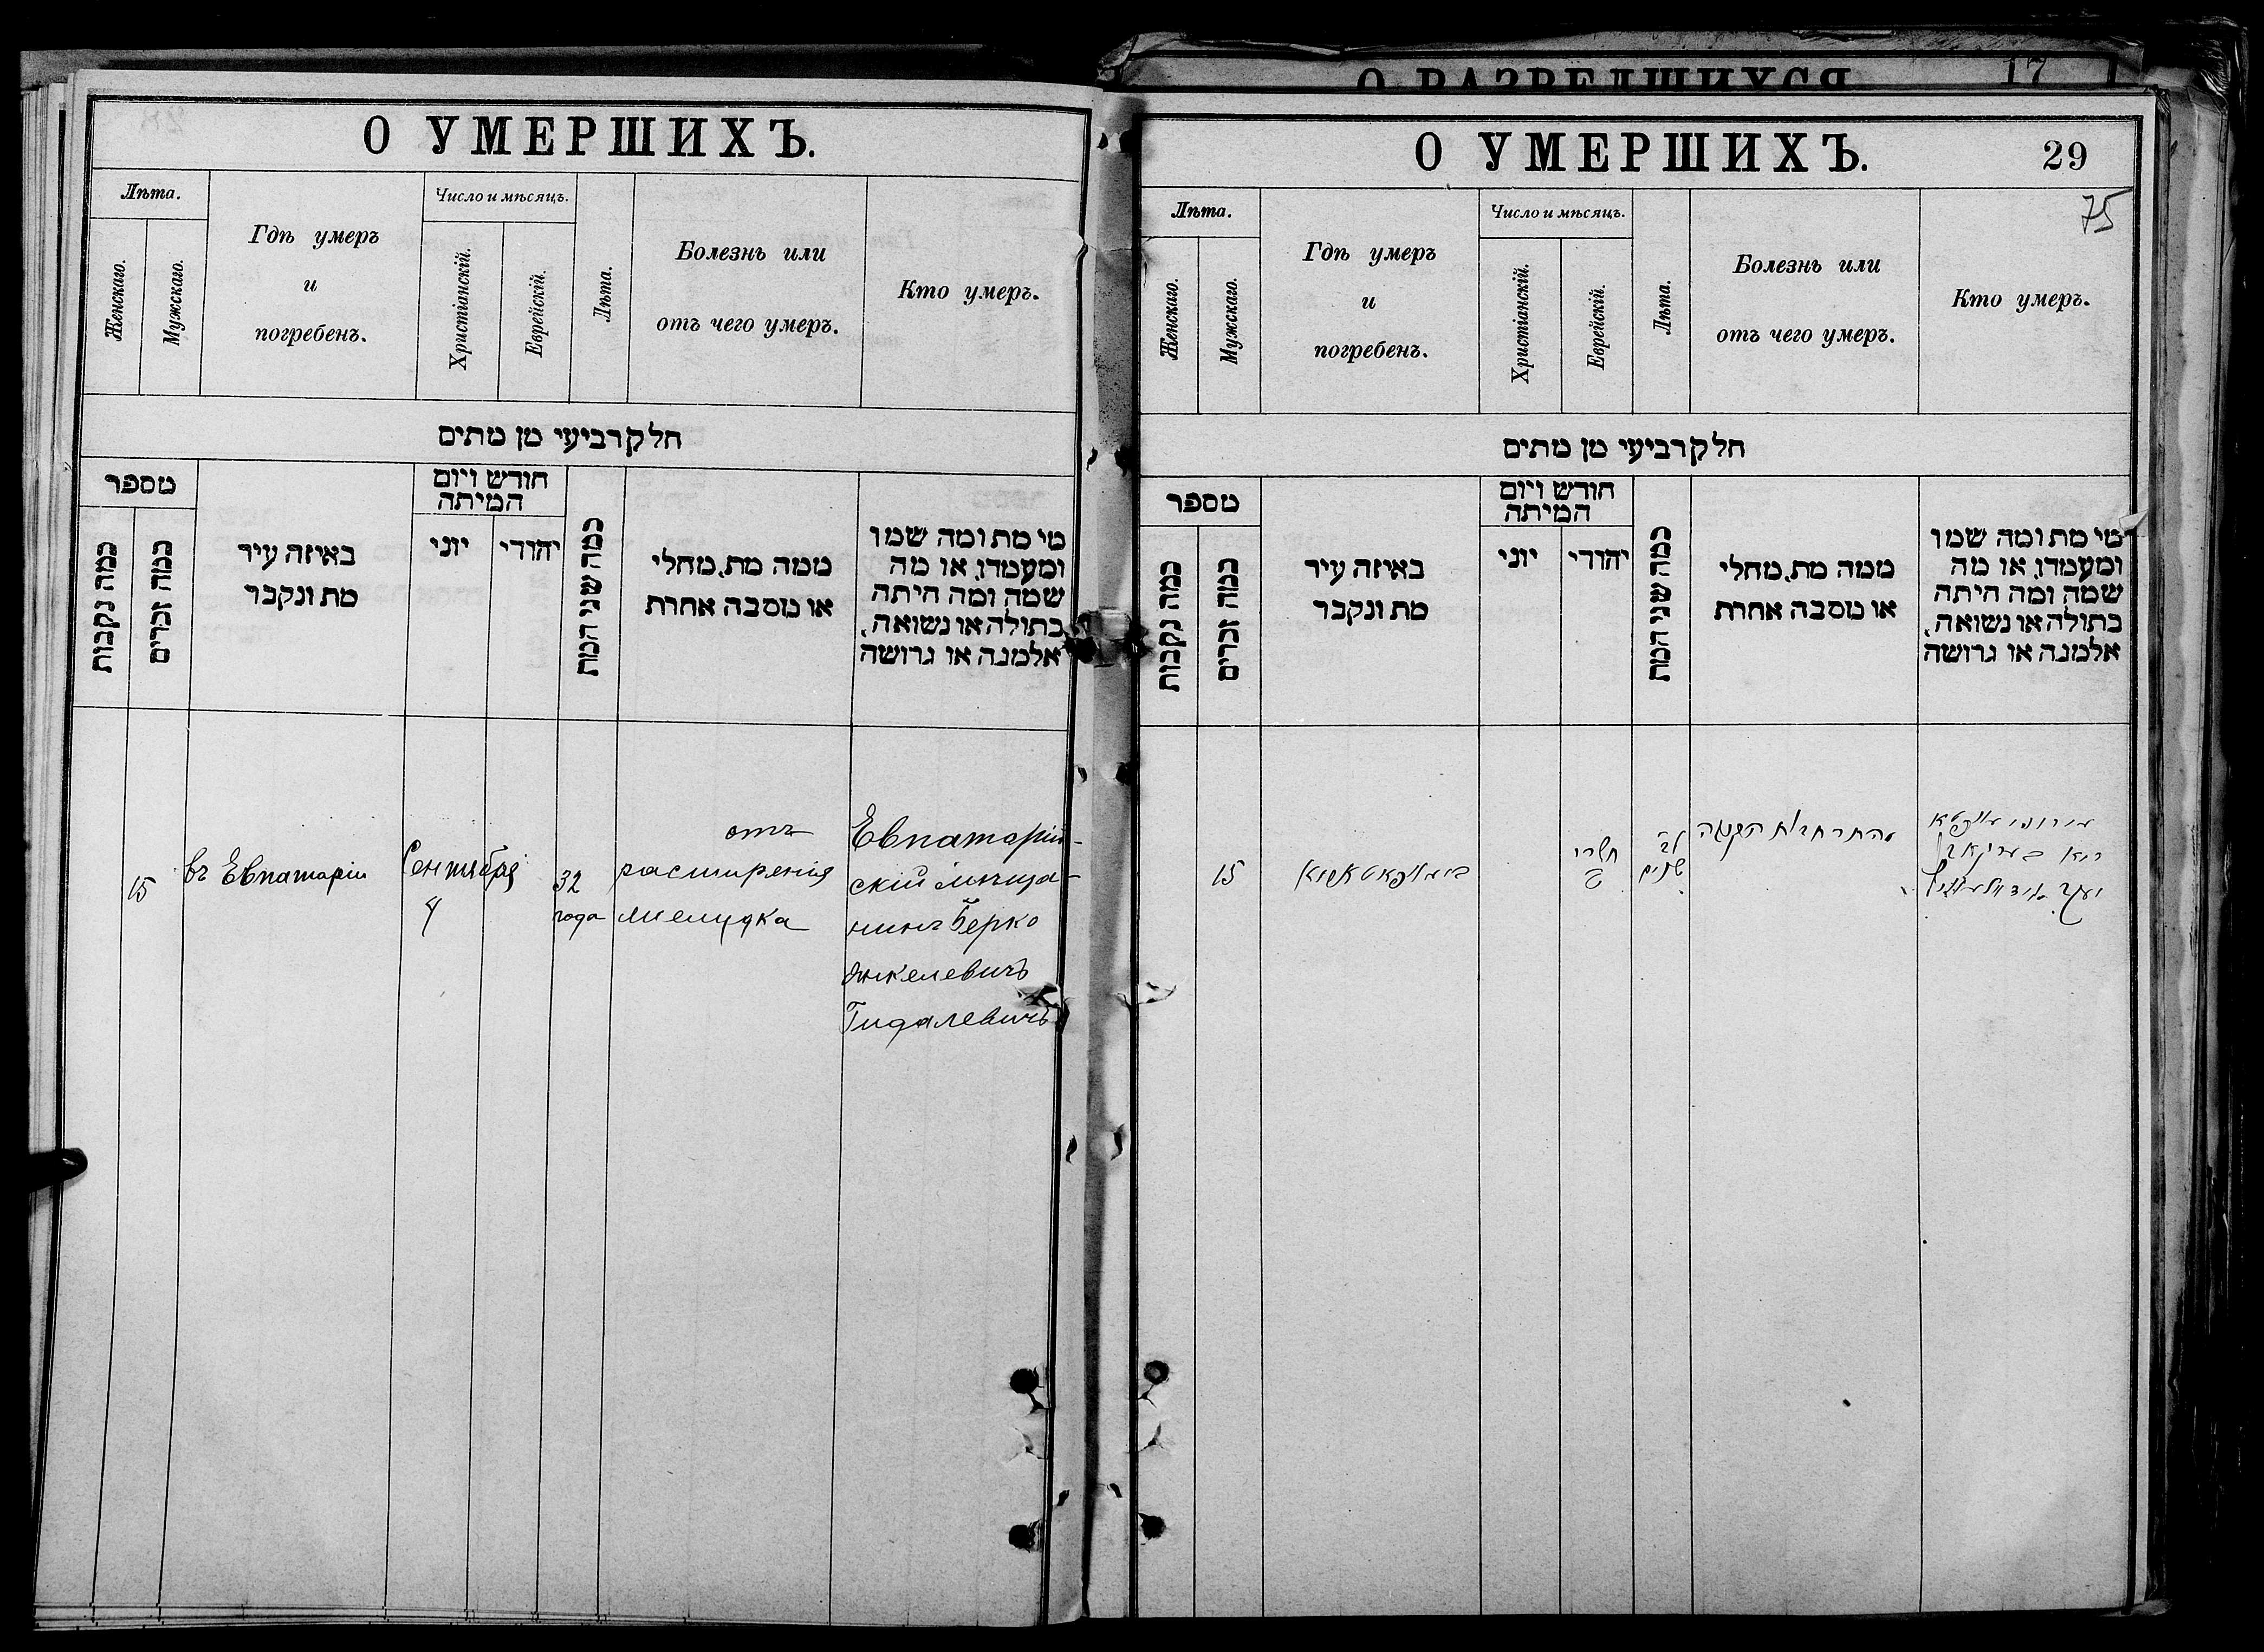 О РАЗВЕДШИХСЯ
17
О УМЕРШИХЪ.
Лѣта.
Женскаго.
Мужскаго.
Гдѣ умеръ
и
погребенъ.
Число и мѣсяцъ.
Христіанскій.
Еврейскій.
Лѣта.
Болезнь или
отъ чего умеръ.
Кто умеръ.
חלק רביעי מן מתים
מספר
כמה נקבות
כמה זכרים
באיזה עיר
מת ונקבר
חודש ויום
המיתה
יוני
יהודי
כמה שני המת
ממה מת, מחלי
או מסבה אחרת
מי מת ומה שמו
ומעמדו, או מה
שמה ומה היתה
בתולה או נשואה,
אלמנה או גרושה
15
въ Евпаторіи
Сентября
4
32
года
отъ
расширенія
желудка
Евпаторій-
скій мѣща-
нинъ Берко
Янкелевичъ
Гидалевичъ
О УМЕРШИХЪ.
29
75
Лѣта.
Женскаго.
Мужскаго.
Гдѣ умеръ
и
погребенъ.
Число и мѣсяцъ.
Христіанскій.
Еврейскій.
Лѣта.
Болезнь или
отъ чего умеръ.
Кто умеръ.
חלק רביעי מן מתים
מספר
כמה נקבות
כמה זכרים
באיזה עיר
מת ונקבר
חודש ויום
המיתה
יוני
יהודי
כמה שני המת
ממה מת, מחלי
או מסבה אחרת
מי מת ומה שמו
ומעמדו, או מה
שמה ומה היתה
בתולה או נשואה,
אלמנה או גרושה
15
תשרי
לב
שנים